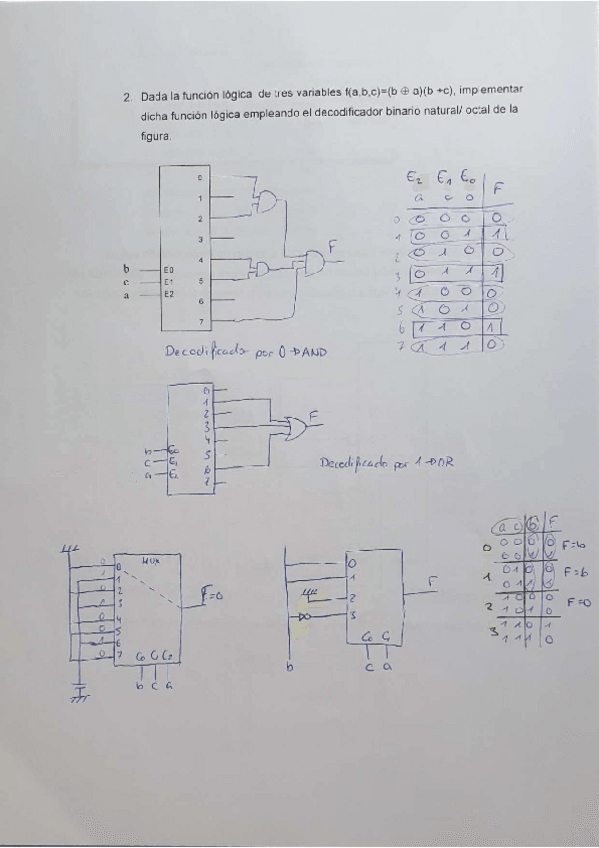 2. Dada la función lógica de tres variables f(a,b,c)=(b ⊕ a)(b +c), implementar
dicha función lógica empleando el decodificador binario natural/ octal de la
figura.
0
1
2
3
4
5
6
7
b E0
c E1
a E2
F
E₂ E₁ E₀
a c b F
0 0 0 0 0
1 0 0 1 1
2 0 1 0 0
3 0 1 1 1
4 1 0 0 0
5 1 0 1 0
6 1 1 0 1
7 1 1 1 0
Decodificado por 0 → AND
0
1
2
3
4
5
6
7
b E₀
c E₁
a E₂
F
Decodificado por 1 → OR
MUX
0 0
1 1
0 2
1 3
0 4
0 5
1 6
0 7
C₀ C₁ C₂
b c a
F=0
0
1
2
3
C₀ C₁
c a
b
F
a c b F
0 0 0 0 0
0 0 1 1 F=b
1 0 1 0 0
0 1 1 1 F=b
2 1 0 0 0
1 0 1 0 F=0
3 1 1 0 1
1 1 1 0